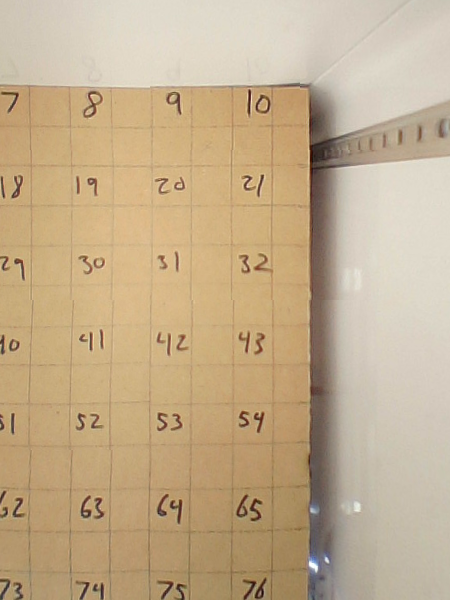 7 8 9 10
18 19 20 21
29 30 31 32
40 41 42 43
51 52 53 54
62 63 64 65
73 74 75 76